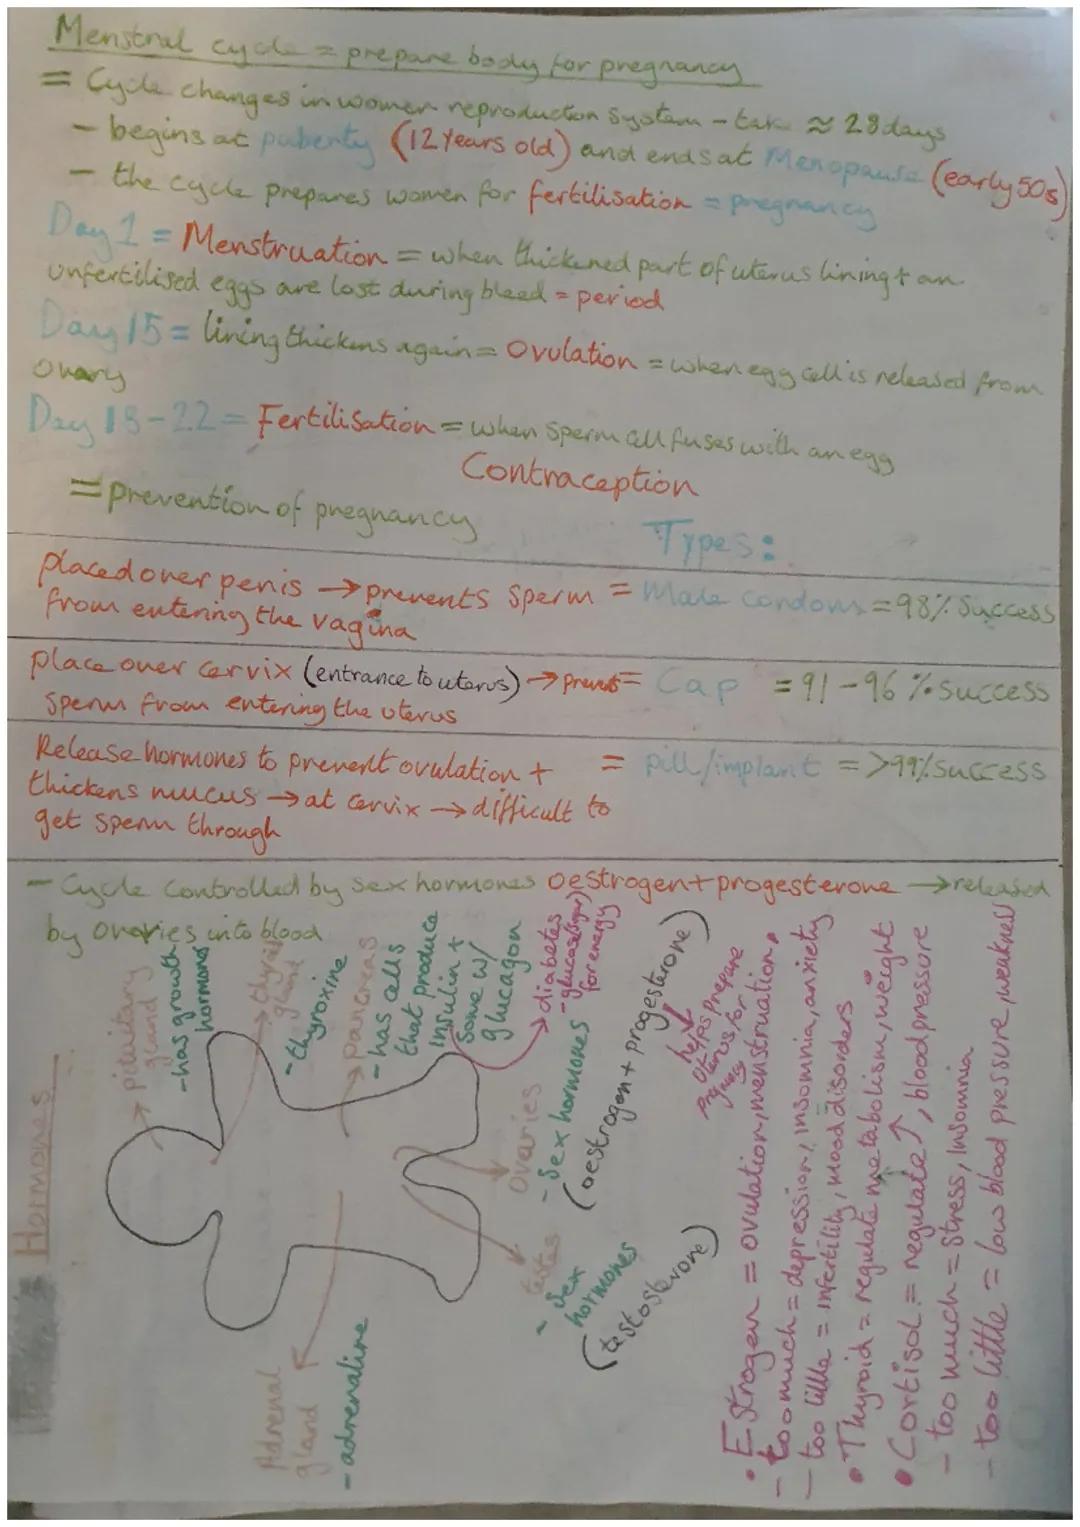 Menstrual cycle = prepare body for pregnancy
= Cycle changes in women reproduction system - take ≈ 28 days
- begins at puberty (12 years old) and ends at Menopause (early 50s)
- the cycle prepares women for fertilisation = pregnancy
Day 1 = Menstruation = when thickened part of uterus lining + an
unfertilised eggs are lost during bleed = period
Day 15 = lining thickens again = Ovulation = when egg cell is released from
ovary
Day 18-22 = Fertilisation = when sperm cell fuses with an egg
Contraception
= prevention of pregnancy
Types:
placed over penis → prevents sperm = Male condoms = 98% Success
from entering the vagina
place over cervix (entrance to uterus) → prevents = Cap = 91-96% success
sperm from entering the uterus
Release hormones to prevent ovulation + = pill/implant = >99% success
thickens mucus → at cervix → difficult to
get sperm through
- Cycle controlled by sex hormones oestrogen + progesterone → released
by ovaries into blood
Hormones
pituitary
gland
- has growth
hormones
thyroid
gland
- thyroxine
pancreas
- has cells
that produce
insulin +
some w/
glucagon
diabetes
- glucose (sugar)
for energy
Ovaries
- Sex hormones
(oestrogen + progesterone)
prepare
uterus for
pregnancy
testes
- Sex
hormones
(testosterone)
Adrenal
gland
- adrenaline
• Estrogen = ovulation, menstruation.
- too much = depression, insomnia, anxiety
- too little = infertility, mood disorders
• Thyroid = regulate metabolism, weight
• Cortisol = regulate ↑, blood pressure
- too much = stress, insomnia
- too little = low blood pressure, weakness